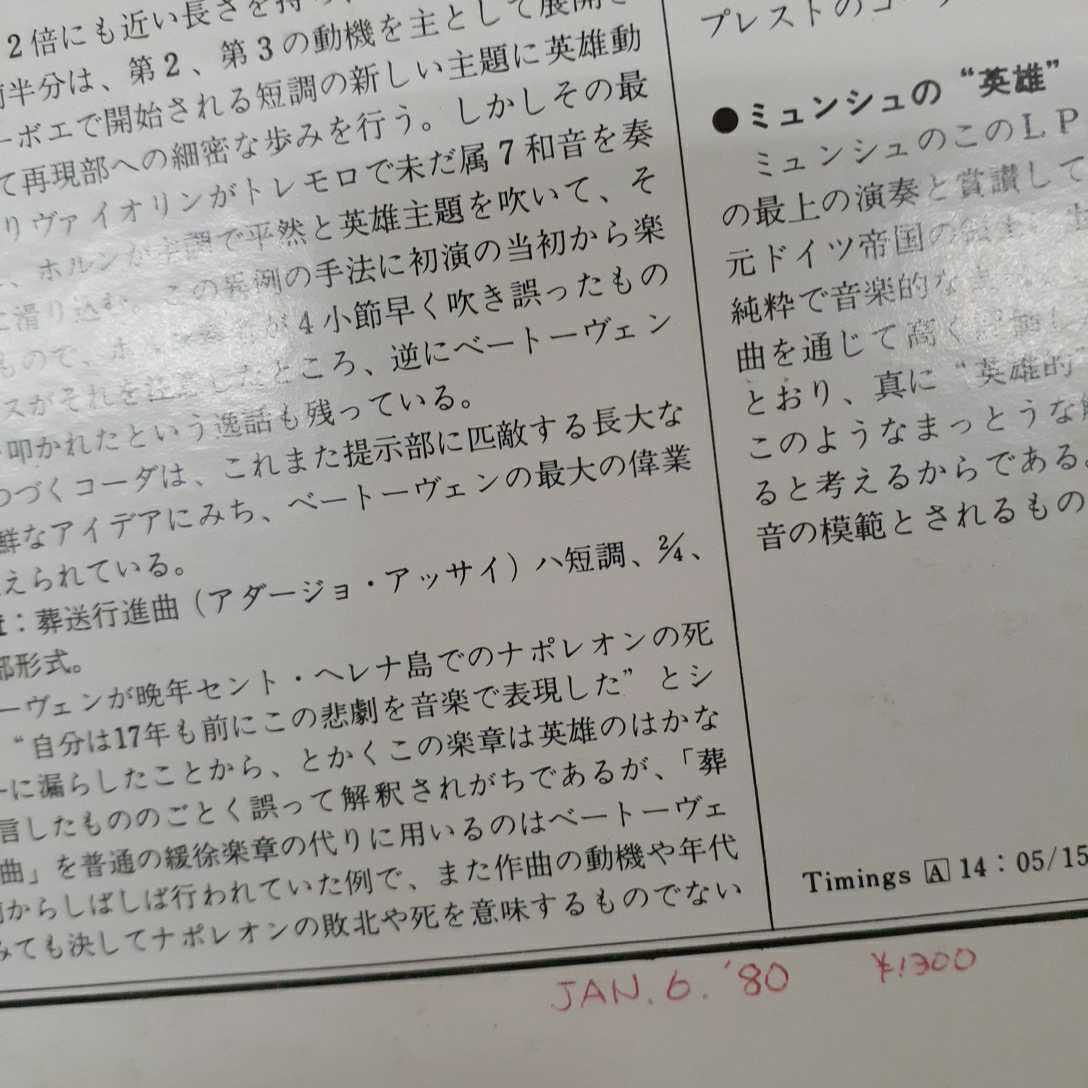 2倍にも近い長さを持
半分は、第2、第3の動機を主として展開
ーボエで開始される短調の新しい主題に英雄動
て再現部への細密な歩みを行う。しかしその最
リヴァイオリンがトレモロで未だ属7和音を奏
、ホルンが主調で平然と英雄主題を吹いて、そ
に滑り込む。この異例の手法に初演の当初から楽
もので、ホ が4小節早く吹き誤ったもの
スがそれを注意したところ、逆にベートーヴェン
叩かれたという逸話も残っている。
つづくコーダは、これまた提示部に匹敵する長大な
鮮なアイデアにみち、ベートーヴェンの最大の偉業
えられている。
：葬送行進曲（アダージョ・アッサイ）ハ短調、2/4、
部形式。
ーヴェンが晩年セント・ヘレナ島でのナポレオンの死
“自分は17年も前にこの悲劇を音楽で表現した”とシ
ーに漏らしたことから、とかくこの楽章は英雄のはかな
言したもののごとく誤って解釈されがちであるが、「葬
曲」を普通の緩徐楽章の代りに用いるのはベートーヴェ
前からしばしば行われていた例で、また作曲の動機や年代
みても決してナポレオンの敗北や死を意味するものでない
プレストのコー
●ミュンシュの“英雄”
ミュンシュのこのLP
の最上の演奏と賞讃して
元ドイツ帝国の
純粋で音楽的な
曲を通じて高く
とおり、真に“英雄的
このようなまっとうな
ると考えるからである。
音の模範とされるもの
Timings A 14：05/15
JAN. 6. '80 ¥1300